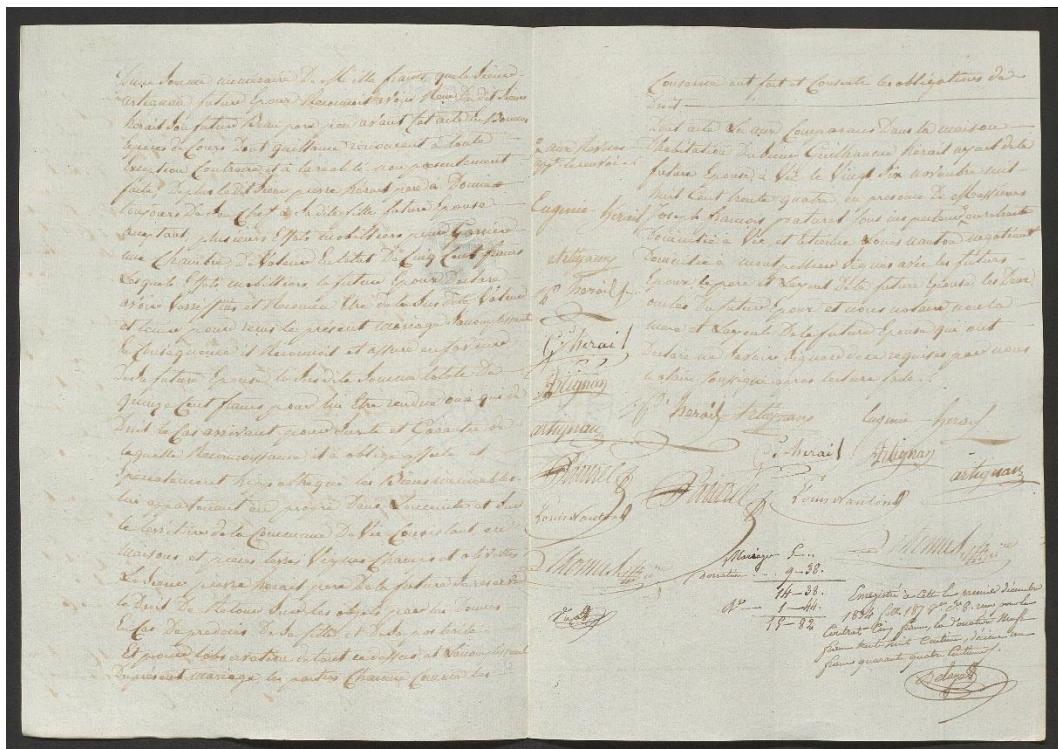 une Somme numeraire De Mille francs que le Sieur
artignan futur Epoux Reconnoit avoir Reçu Du dit Sieur
herail Son futur Beau pere peu avant Cet acte En Bonnes
Especes de Cours Dont quittance renonçant à toute
Exception Contraire et à la réalité non presentement
faite, De plus le dit Sieur pierre herail pere à Donné
toujours De Son Chef à Sa dite fille future Epouse
acceptant, plusieurs Effets mobilliers pour Garnir
une Chambre De Valeur En total De Cinq Cent francs
Lesquels Effets mobilliers le futur Epoux Declare
avoir Verriffiés et Reconnu Etre de la Susdite Valeur
et Comme pour venir le present mariage S'accomplissant
En Consequence il Reconnoit et assure en faveur
De Sa future Epouse la Susdite Somme totale De
quinze Cent francs pour lui Etre rendue ou a qui de
Droit le Cas arrivant pour Surté et Garantie de
laquelle Reconnoissance il a obligé affecté et
Specialement hypothequé les Biens immeubles
lui appartenant en propre Dans L'enceinte et Sur
le territoire de la Commune De Vic Consistant en
maisons et pieces terres Vignes Champs et olivettes
Le Sieur pierre herail pere De la future Se reserve
le Droit De Retour Sur les objets par lui Donnés
En Cas De predeces De Sa fille et De Sa posterité
Et pour l'observation de tout ce dessus et S'accomplissant
Le present mariage, les parties Chacune Comme les
Concerne ont fait et Consenti les obligations de
Droit
Dont acte Lu aux Comparans Dans la maison
d'habitation Du Sieur Guillaume herail ayeul de la
future Epouse à Vic le Vingt Six novembre mil
huit Cent trente quatre, en presence de Messieurs
Joseph françois pratures Sous inspecteur en retraite
Domicilié à Vic et Etienne Louis nanton negotiant
Domicilié à montpellier Signés avec les futurs
Epoux le pere et L'ayeul De la future Epouse les Deux
oncles du futur Epoux et nous notaire non la
mere et L'ayeule De la future Epouse qui ont
Declaré ne Savoir Signer de ce requises par nous
notaire Soussigné apres lecture faite
Eugenie herail
artignan
P. herail
G. herail
Artignan
artignan
Louis nanton
P. herail Artignan Eugenie herail
G. herail Artignan artignan
Louis Nanton
Thomas
Thomas
Mariage 5 ..
Donation ... 9 - 38.
14 - 38.
Dme 1 - 44.
15 - 82
Enregistré à Cette le premier décembre
1834 folio 187 Vo Ces 8. reçu pour le
Contrat Cinq francs, la donation Neuf
francs trente huit Centimes, décime un
franc quarante quatre Centimes.